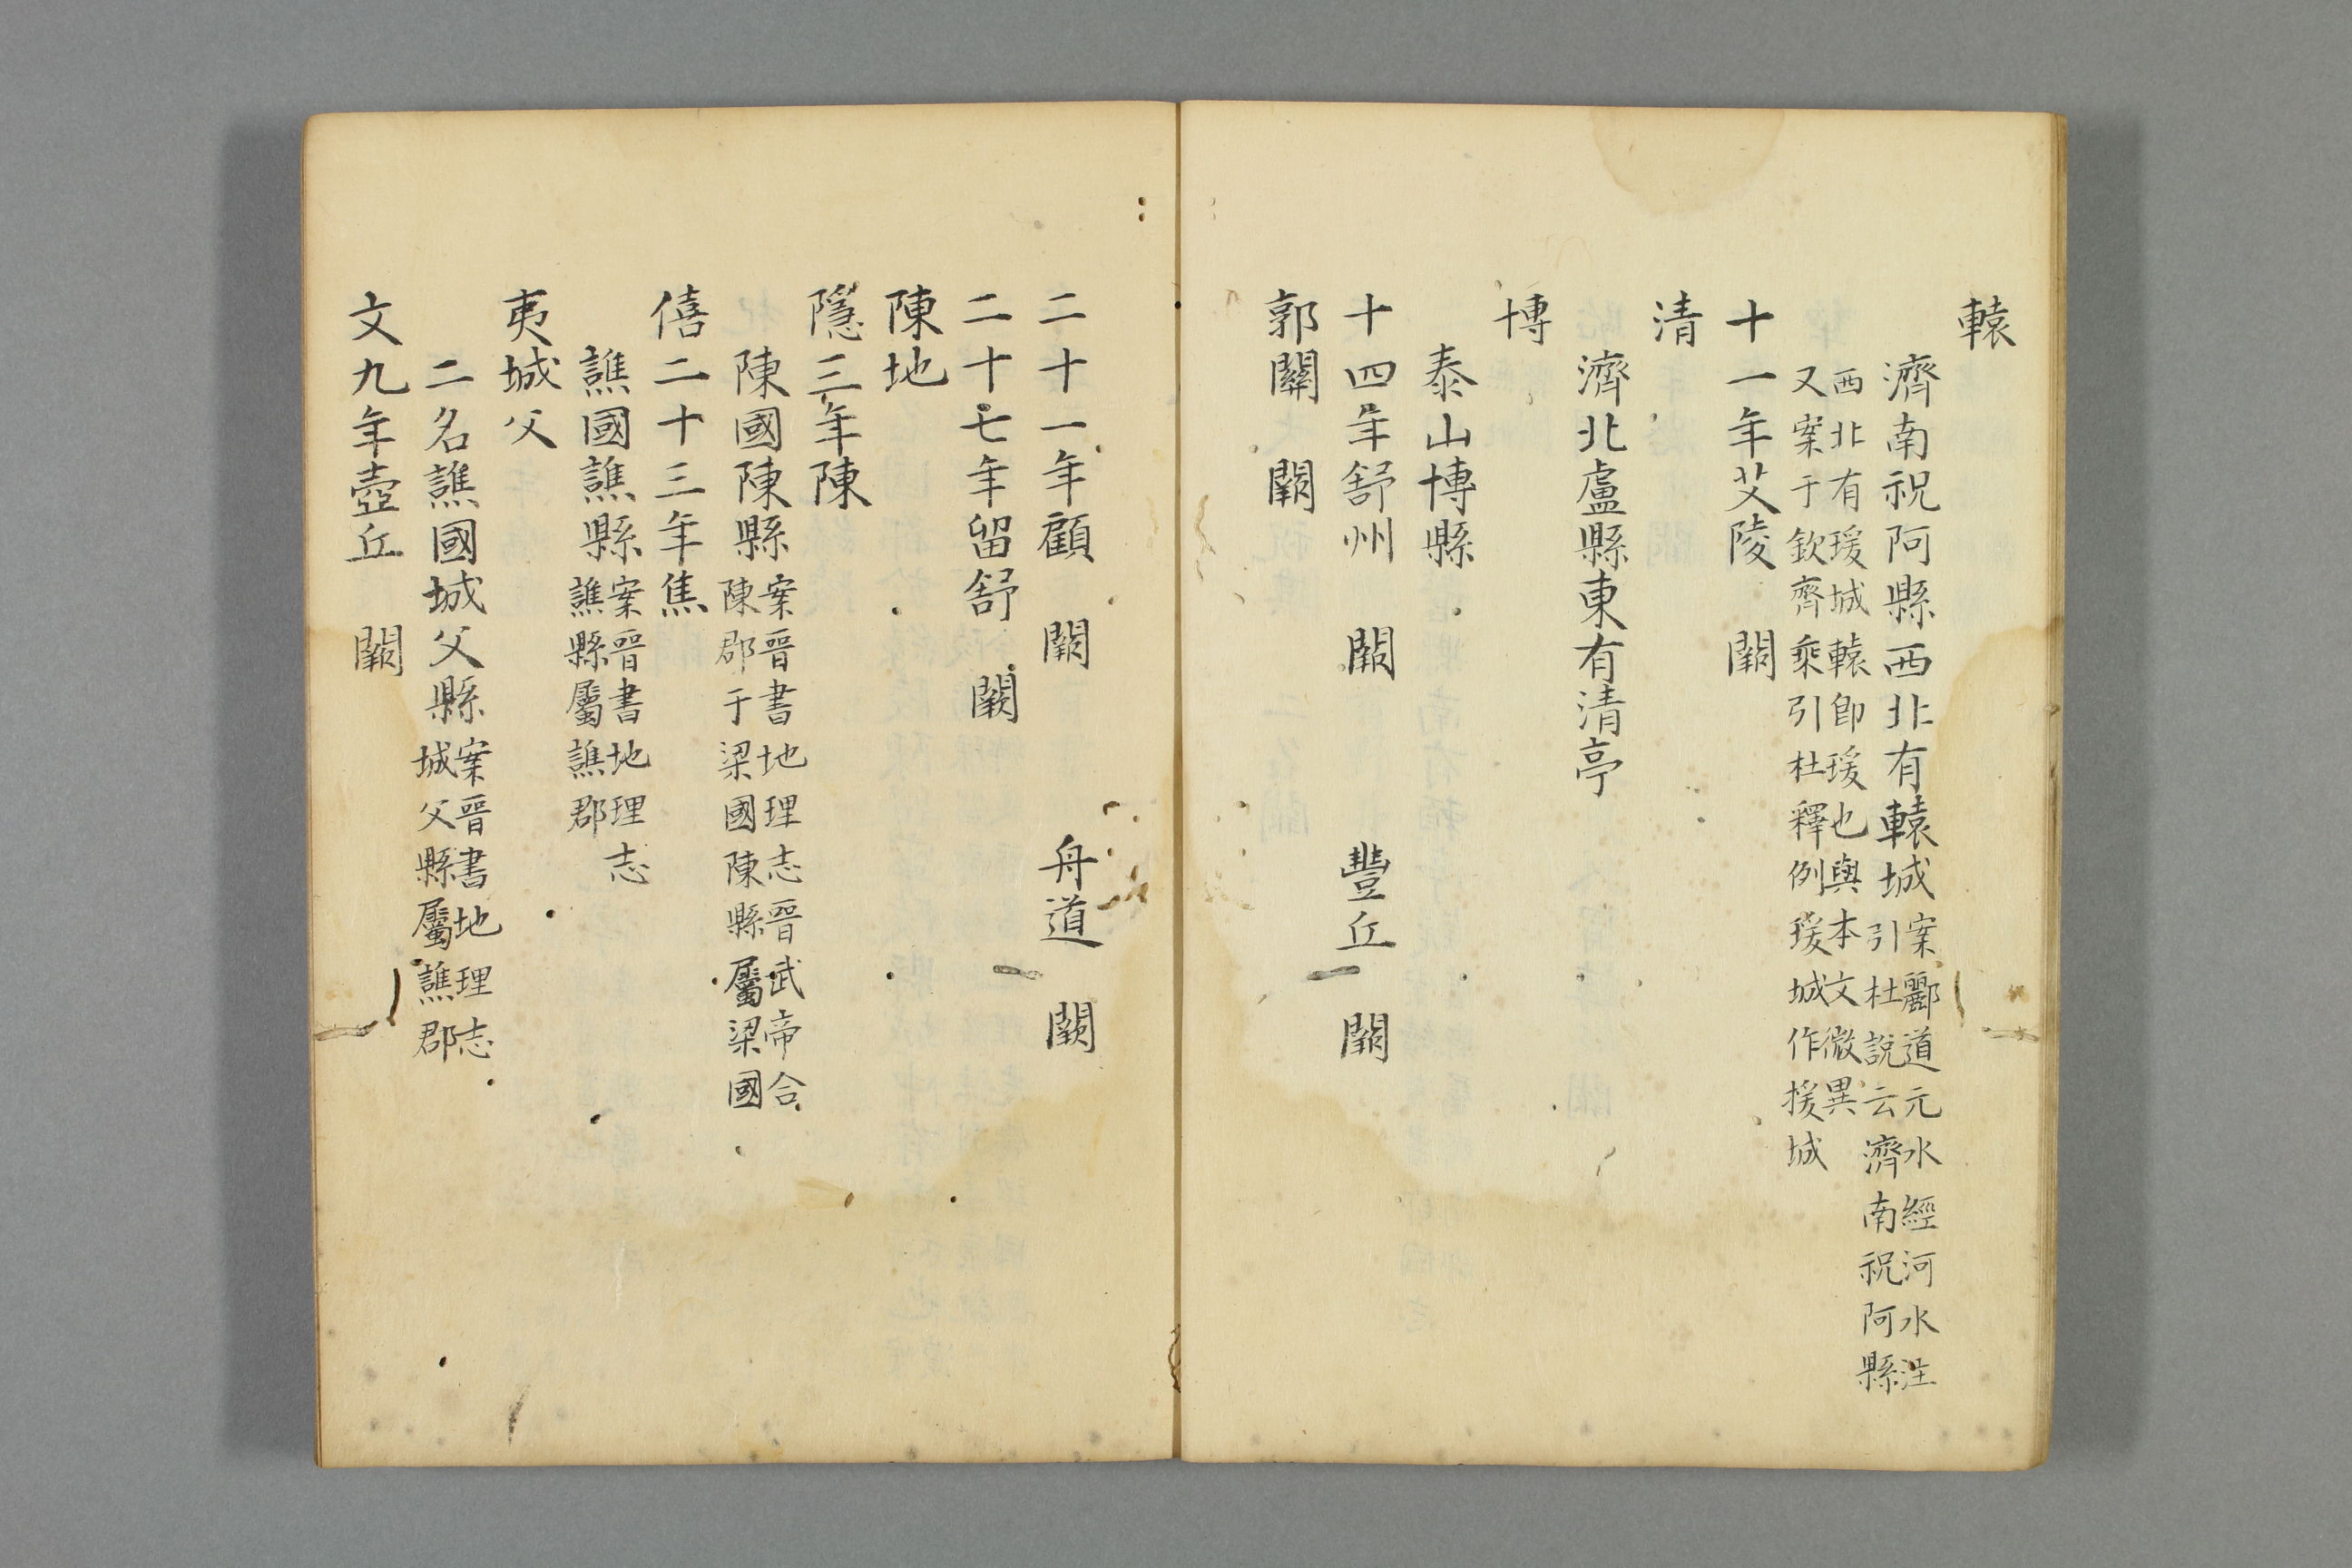 轅
濟南祝阿縣西北有轅城案酈道元水經河水注
引杜說云濟南祝阿縣
西北有瑗城轅即瑗也與本文微異
又案于欽齊乘引杜釋例瑗城作援城
十一年艾陵 闕
清
濟北盧縣東有清亭
博
泰山博縣
十四年舒州 闕 豐丘 闕
郭關 闕
二十一年顧 闕 舟道 闕
二十七年留舒 闕
陳地
隱三年陳
陳國陳縣案晉書地理志晉武帝合
陳郡于梁國陳縣屬梁國
僖二十三年焦
譙國譙縣案晉書地理志
譙縣屬譙郡
夷城父
二名譙國城父縣案晉書地理志
城父縣屬譙郡
文九年壺丘 闕